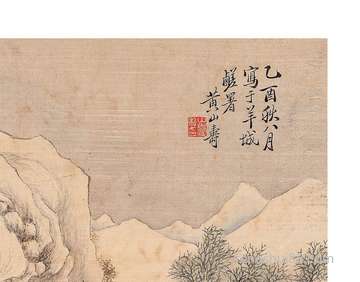 乙酉秋八月
寫于羊城
鹾署
黃山壽